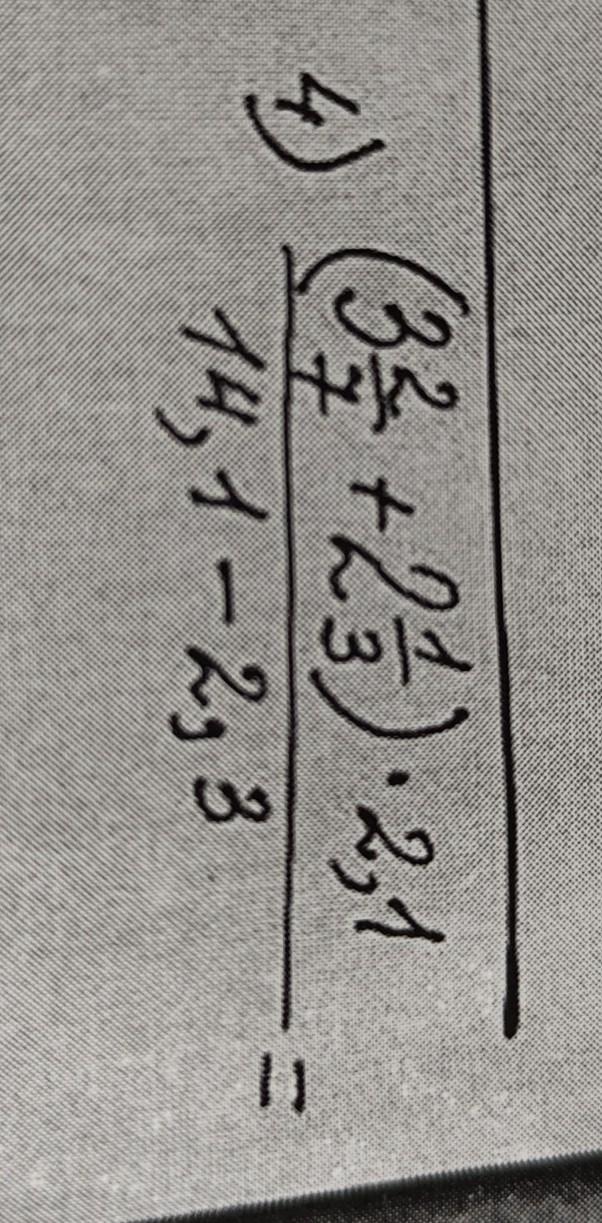 4) (3 2/7 + 2 1/3) · 2,1
14,1 - 2,3 =